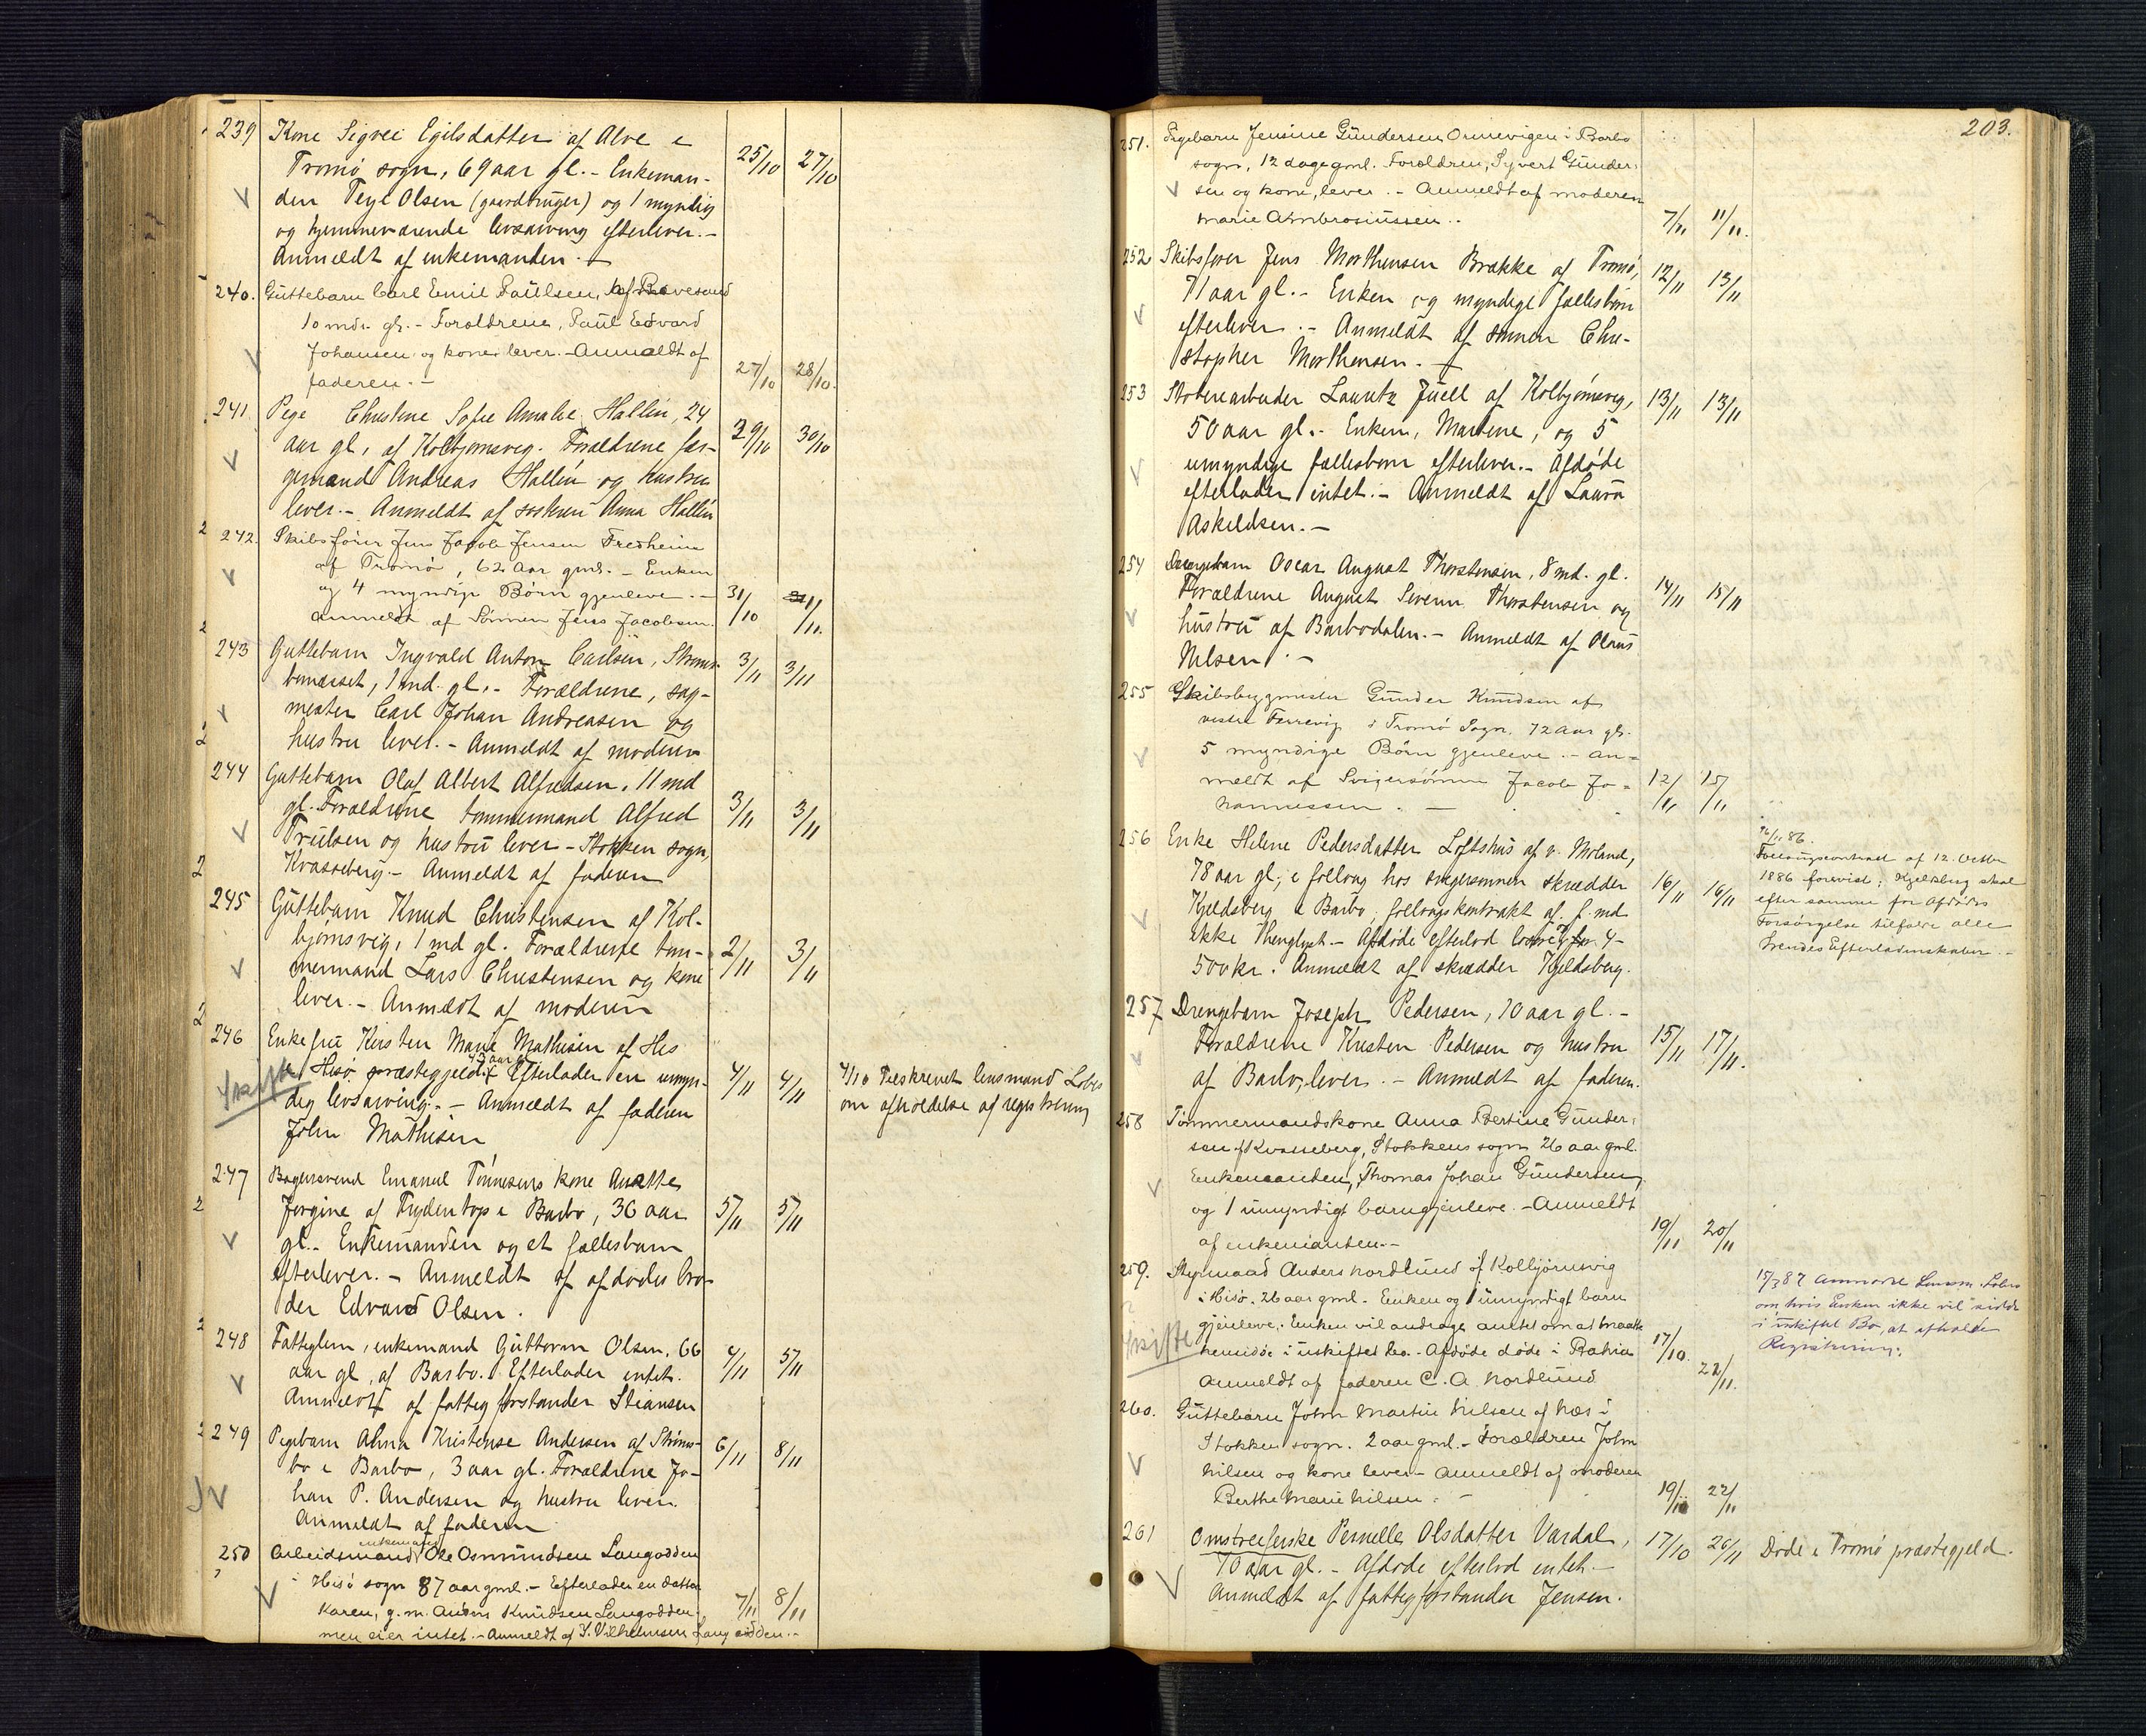 239 Kone Sigvei Egilsdatter af Alve i
Tromø sogn, 69 aar gl. - Enkeman-
den Terje Olsen (gaardbruger) og 1 myndig
og hjemmeværende livsarving efterlever. -
Anmeldt af enkemanden. -
25/10 27/10
240. Guttebarn Carl Emil Paulsen, af Revesand
10 mdr. gl. - Forældrene, Paul Edvard
Johansen og kone lever. - Anmeldt af
faderen. -
27/10 28/10.
241. Pige Christine Sofie Amalie Hallin, 24
aar gl, af Kolbjørnsvig. Forældrene fær-
gemand Andreas Hallin og hustru
lever. - Anmeldt af søsteren Anna Hallin
29/10 30/10
242. Skibsfører Jens Jacob Jensen Fredheim
af Tromø, 62 Aar gml. - Enken
og 4 myndige Børn gjenleve. -
Anmeldt af Sønnen Jens Jacobsen.
31/10 1/11.
243 Guttebarn Ingvald Anton Carlsen, Strøms-
bunesset, 1 md. gl. - Forældrene, sag-
mester Carl Johan Andreasen og
hustru lever. - Anmeldt af moderen
3/11 3/11
244 Guttebarn Olaf Albert Alfredsen, 11 md
gl. Forældrene tømmermand Alfred
Trulsen og hustru lever - Stokken sogn,
Kvasseberg. - Anmeldt af faderen
3/11 3/11
245 Guttebarn Knud Christensen af Kol-
bjørnsvig, 1 md gl. Forældrene tøm-
mermand Lars Christensen og kone
lever. - Anmeldt af moderen
2/11 3/11
246 Enkefru Kirsten Marie Mathisen af His
43 aar gl
i Hisø præstegjeld. Efterlader en umyn-
dig livsarving. - Anmeldt af faderen
John Mathisen
Skifte
4/11 4/11
4/10 Tilskrevet lensmand Lobes
om afholdelse af registrering
247 Bagersvend Emanuel Tønnesens kone Anette
Jørgine af Frydentop i Barbo, 36 aar
gl. - Enkemanden og et fællesbarn
efterlever. - Anmeldt af afdødes bro-
der Edvard Olsen.
5/11 5/11
248 Fattiglem, enkemand Guttorm Olsen, 66
aar gl, af Barbo. Efterlader intet.
Anmeldt af fattigforstander Stiansen
4/11 5/11
249 Pigebarn Alma Kristense Andersen af Strøms-
bo i Barbo, 3 aar gl. Forældrene Jo-
han P. Andersen og hustru lever.
Anmeldt af faderen
6/11 8/11
enkemand
250 Arbeidsmand Ole Osmundsen Langodden
i Hisø sogn 87 aar gml. - Efterlader en datter
Karen, g. m. Anders Knudsen Langodden
men eier intet. - Anmeldt af S. Vilhelmsen Langodden. -
7/11 8/11
203.
251. Pigebarn Jensine Gundersen Ormevigen i Barbo
sogn, 12 dage gml. Forældren, Syvert Gunder-
sen og kone, lever. - Anmeldt af moderen
Marie Ambrosiussen.
7/11 11/11.
252 Skibsfører Jens Morthensen Brække af Tromø,
71 aar gl. - Enken og myndige fællesbørn
efterlever. - Anmeldt af sønnen Chri-
stopher Morthensen. -
12/11 13/11
253 Stoberiarbeider Lauritz Juell af Kolbjørnsvig,
50 aar gl. - Enken, Martine, og 5
umyndige fællesbørn efterlever. - Afdøde
efterlader intet. - Anmeldt af Laura
Askildsen. -
13/11 13/11
254 Drengebarn Oscar August Thorstensen, 8 md. gl.
Forældrene August Severin Thorstensen og
hustru af Barbodalen. - Anmeldt af Olaus
Nilsen. -
14/11 15/11
255 Skibsbygmester Gunder Knudsen af
vestre Færevig i Tromø Sogn, 72 aar gl.
5 myndige Børn gjenleve. - An-
meldt af Svigersønnen Jacob Jo-
hannessen. -
12/11 15/11
256 Enke Helene Pedersdatter Loftshus af v. Moland,
78 aar gl., i føllaug hos svigersønnen skrædder
Kjeldsberg i Barbo, føllaugskontrakt af f. md
ikke thinglyst. - Afdøde efterlod løsøre for 4-
500 kr. Anmeldt af skrædder Kjeldsberg.
16/11 16/11
16/11 86.
Føllaugscontract af 12. Octbr
1886 forevist; Kjeldsberg skal
efter samme for Afdødes
Forsørgelse tilfalde alle
hendes Efterladenskaber. -
257 Drengebarn Joseph Pedersen, 10 aar gl. -
Forældrene Kristen Pedersen og hustru
af Barbo, lever. - Anmeldt af faderen.
15/11 17/11.
258 Tømmermandskone Anna Bertine Gunder-
sen af Kvasseberg, Stokkens sogn 26 aar gml.
Enkemanden, Thomas Johan Gundersen,
og 1 umyndigt barn gjenleve. - Anmeldt
af enkemanden. -
19/11 20/11
259. Styrmand Anders Nordlund af Kolbjørnsvig
i Hisø. 26 aar gml. Enken og 1 umyndigt barn
gjenleve. Enken vil andrage amtet om at maatte
hensidde i uskiftet bo. - Afdøde døde i Bahia
Anmeldt af faderen C. A. Nordlund
Skifte
17/10. 22/11.
15/3 87 anmodet Lensm. Lobes
om, hvis Enken ikke vil sidde
i uskiftet Bo, at afholde
Registrering.
260. Guttebarn John Martin Nilsen af Næs i
Stokken sogn. 2 aar gml. - Forældren John
Nilsen og kone lever - Anmeldt af moderen
Berthe Marie Nilsen. -
19/11 22/11
261 Omstreiferske Pernelle Olsdatter Vardal,
70 aar gl. - Afdøde efterlod intet. -
Anmeldt af fattigforstander Jensen.
17/10 26/11 Døde i Tromø præstegjeld.